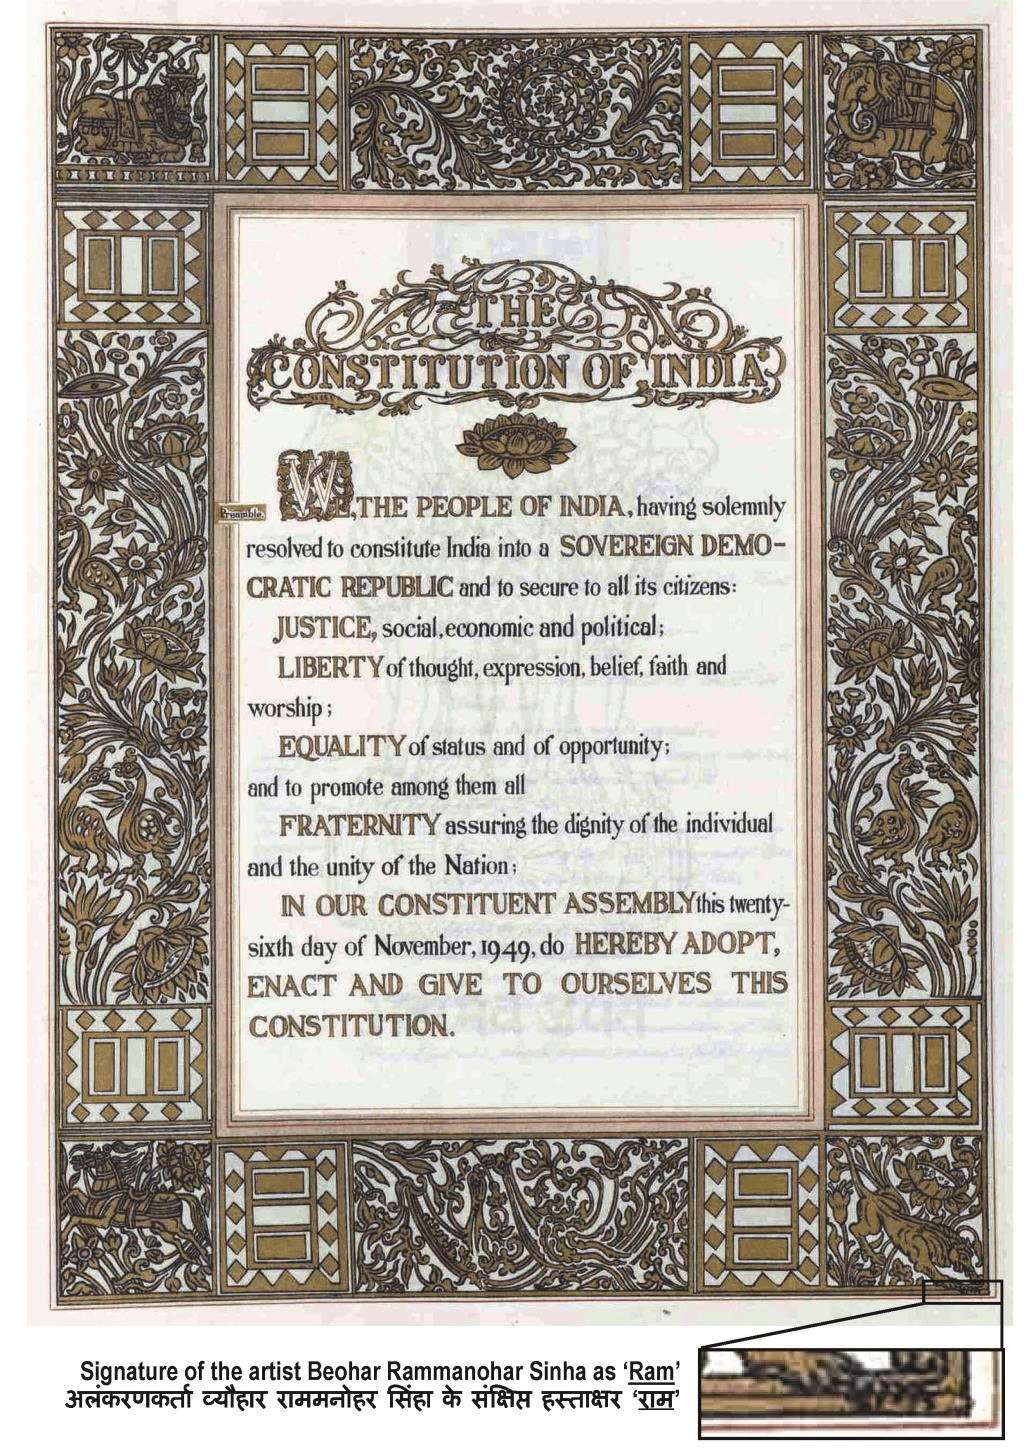 THE
CONSTITUTION OF INDIA
Preamble.
WE, THE PEOPLE OF INDIA, having solemnly
resolved to constitute India into a SOVEREIGN DEMO-
CRATIC REPUBLIC and to secure to all its citizens:
JUSTICE, social, economic and political;
LIBERTY of thought, expression, belief, faith and
worship;
EQUALITY of status and of opportunity;
and to promote among them all
FRATERNITY assuring the dignity of the individual
and the unity of the Nation;
IN OUR CONSTITUENT ASSEMBLY this twenty-
sixth day of November, 1949, do HEREBY ADOPT,
ENACT AND GIVE TO OURSELVES THIS
CONSTITUTION.
Signature of the artist Beohar Rammanohar Sinha as ‘Ram’
अलंकरणकर्ता व्यौहार राममनोहर सिंहा के संक्षिप्त हस्ताक्षर ‘राम’